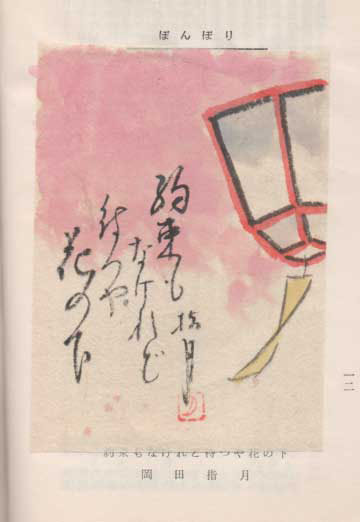 ぼんぼり
約束も
なけれど
待つや
花の下
指月
約束もなけれど待つや花の下
岡田指月
一二